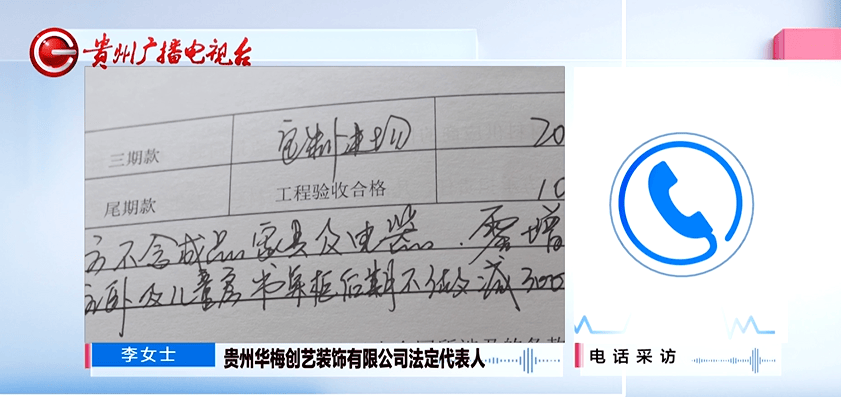 贵州广播电视台
三期款 定制下单时 20
尾期款 工程验收合格 10
方不含成品家具及电器. 需增
主卧及儿童房书桌柜后期不做减3000
李女士 贵州华梅创艺装饰有限公司法定代表人
电话采访